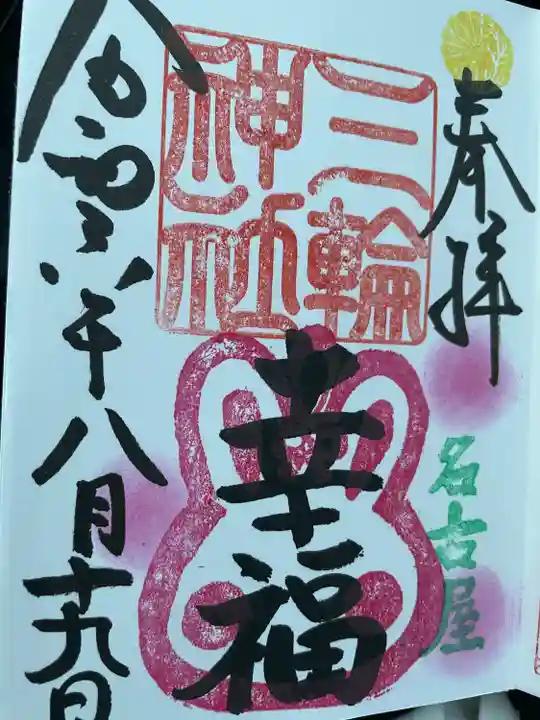 奉拝
名古屋
三輪
神社
幸福
令和六年八月十九日